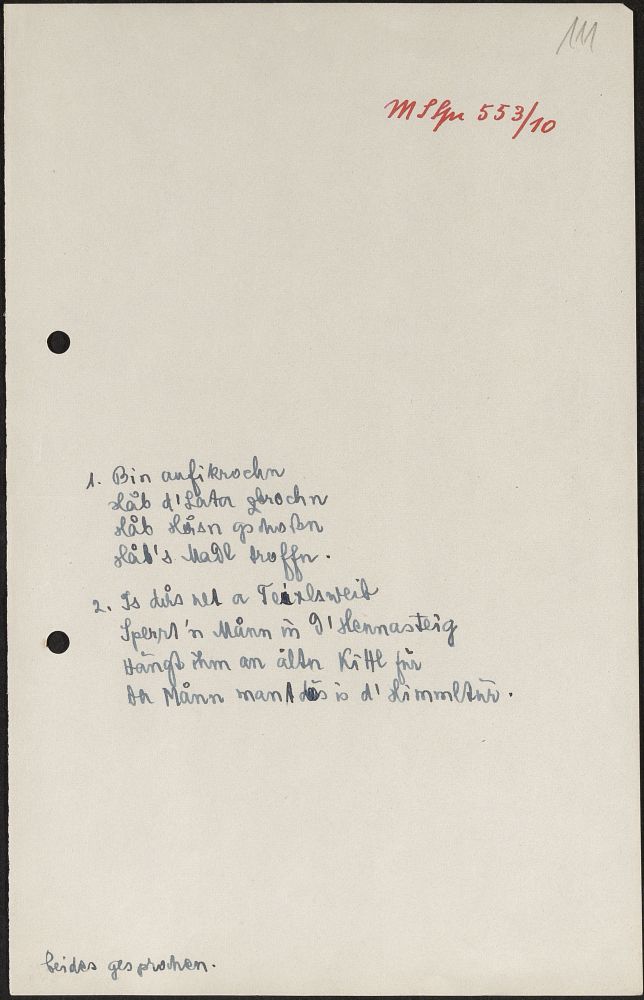 111
MSGn 553/10
1. Bin aufikrochn
Håb d'Låta brochn
Håb Håsn gschoßn
Håb's Madl troffn.
2. Is dås net a Teixlsweib
Sperrt 'n Månn in d'Hennasteig
Hängt ihm an åltn Kittl für
Da Månn mant dås is d'Himmltür.
beides gesprochen.